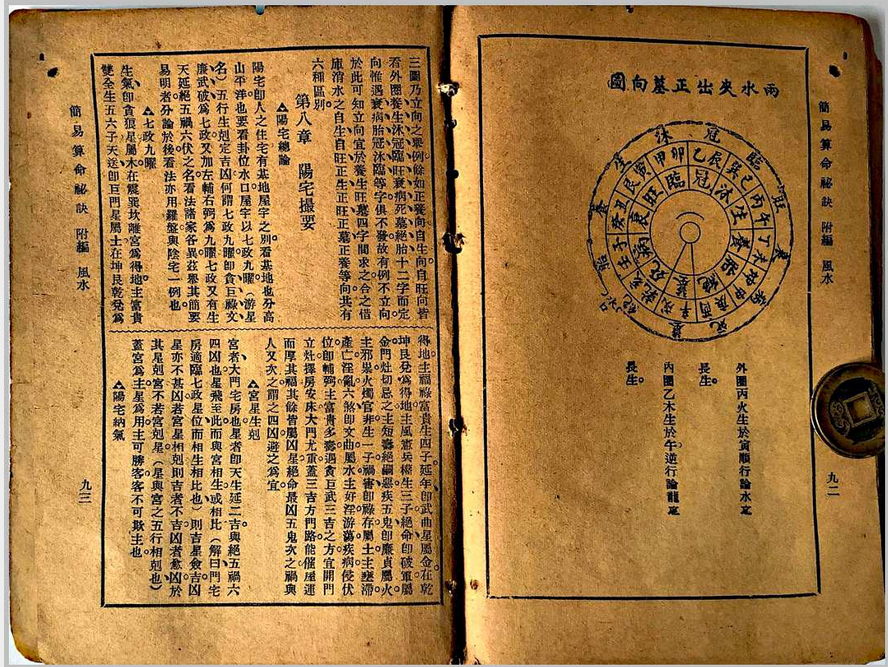 簡易算命祕訣 附編 風水
九二
兩水夾出正墓向圖
冠臨旺衰病死墓絕胎養生沐
卯乙辰巽巳丙午丁未坤申庚酉辛戌乾亥壬子癸丑艮寅甲
冠沐生養胎絕墓死病衰旺臨
外圈丙火生於寅順行論水之
長生。
內圈乙木生於午逆行論龍之
長生。
三圖乃立向之舉例餘如正養向自生向自旺向皆
看外圈養生沐冠臨旺衰病死墓絕胎十二字而定
向惟遇衰病胎冠沐臨等字俱不發故有例不立向
於此可知立向宜於養生旺墓四字間求之合之借
庫消水之自生自旺正生正旺正墓正養等向共有
六種區別。
第八章 陽宅撮要
▲陽宅總論
陽宅卽人之住宅有基地屋宇之別。看基地也分高
山平洋也要看卦位水口屋宇以七政九曜（游星
名）五行生剋定吉凶何謂七政九曜卽貪巨祿文
廉武破爲七政又加左輔右弼爲九曜七政又有生
天延絕五禍六伏之名看法諸家各異玆舉其簡要
易明者分論於後看法亦用羅盤與陰宅一例也
▲七政九曜
生氣卽貪狼星屬木在震巽坎離宮爲得地主富貴
雙全生五六子天醫卽巨門星屬土在坤艮乾兌爲
得地主福祿富貴生四子延年卽武曲星屬金在乾
坤艮兌爲得地主風憲兵權生三子絕命卽破軍屬
金門灶切忌之主短壽絕嗣惡疾五鬼卽廉貞屬火
主邪祟火燭官非生一子禍害卽祿存屬土主壅滯
產亡淫亂六煞卽文曲屬水主好淫游蕩疾病侵伏
位卽輔弼主富貴多壽遇貪巨武三吉之方宜開門
立灶擇房安床大門尤重蓋三吉方門路能催屋運
而厚其福其餘皆屬凶星絕命最凶五鬼次之禍與
人又次之謂之四凶避之爲宜。
▲宮星生剋
宮者大門宅房也星者卽天生延二吉與絕五禍六
四凶也星飛至此而與宮相生或相比（解曰門宅
房適臨七政星位而相生相比也）則吉星僉吉凶
星亦不甚凶若宮星相剋則吉者不吉凶者愈凶於
其星剋宮不若宮剋星（星與宮之五行相剋也）
蓋宮爲主星爲用主可勝客客不可欺主也。
▲陽宅納氣
簡易算命祕訣 附編 風水
九三